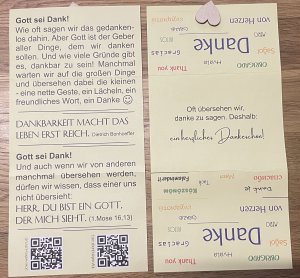 Gott sei Dank!
Wie oft sagen wir das gedanken-
los dahin. Aber Gott ist der Geber
aller Dinge, dem wir danken
sollen. Und wie viele Gründe gibt
es, dankbar zu sein! Manchmal
warten wir auf die großen Dinge
und übersehen dabei die kleinen
- eine nette Geste, ein Lächeln, ein
freundliches Wort, ein Danke ☺
DANKBARKEIT MACHT DAS
LEBEN ERST REICH. Dietrich Bonhoeffer
Gott sei Dank!
Und auch wenn wir von anderen
manchmal übersehen werden,
dürfen wir wissen, dass einer uns
nicht übersieht:
HERR, DU BIST EIN GOTT,
DER MICH SIEHT. (1.Mose 16,13)
von Herzen
Danke
Gracias
Thank you
OBRIGADO
Oft übersehen wir,
danke zu sagen. Deshalb:
ein herzliches Dankeschön!
Thank you
OBRIGADO
Faleminderit
Tack
Merci
спасибо
Köszönöm
Dank je
von Herzen
Danke
Gracias
Thank you